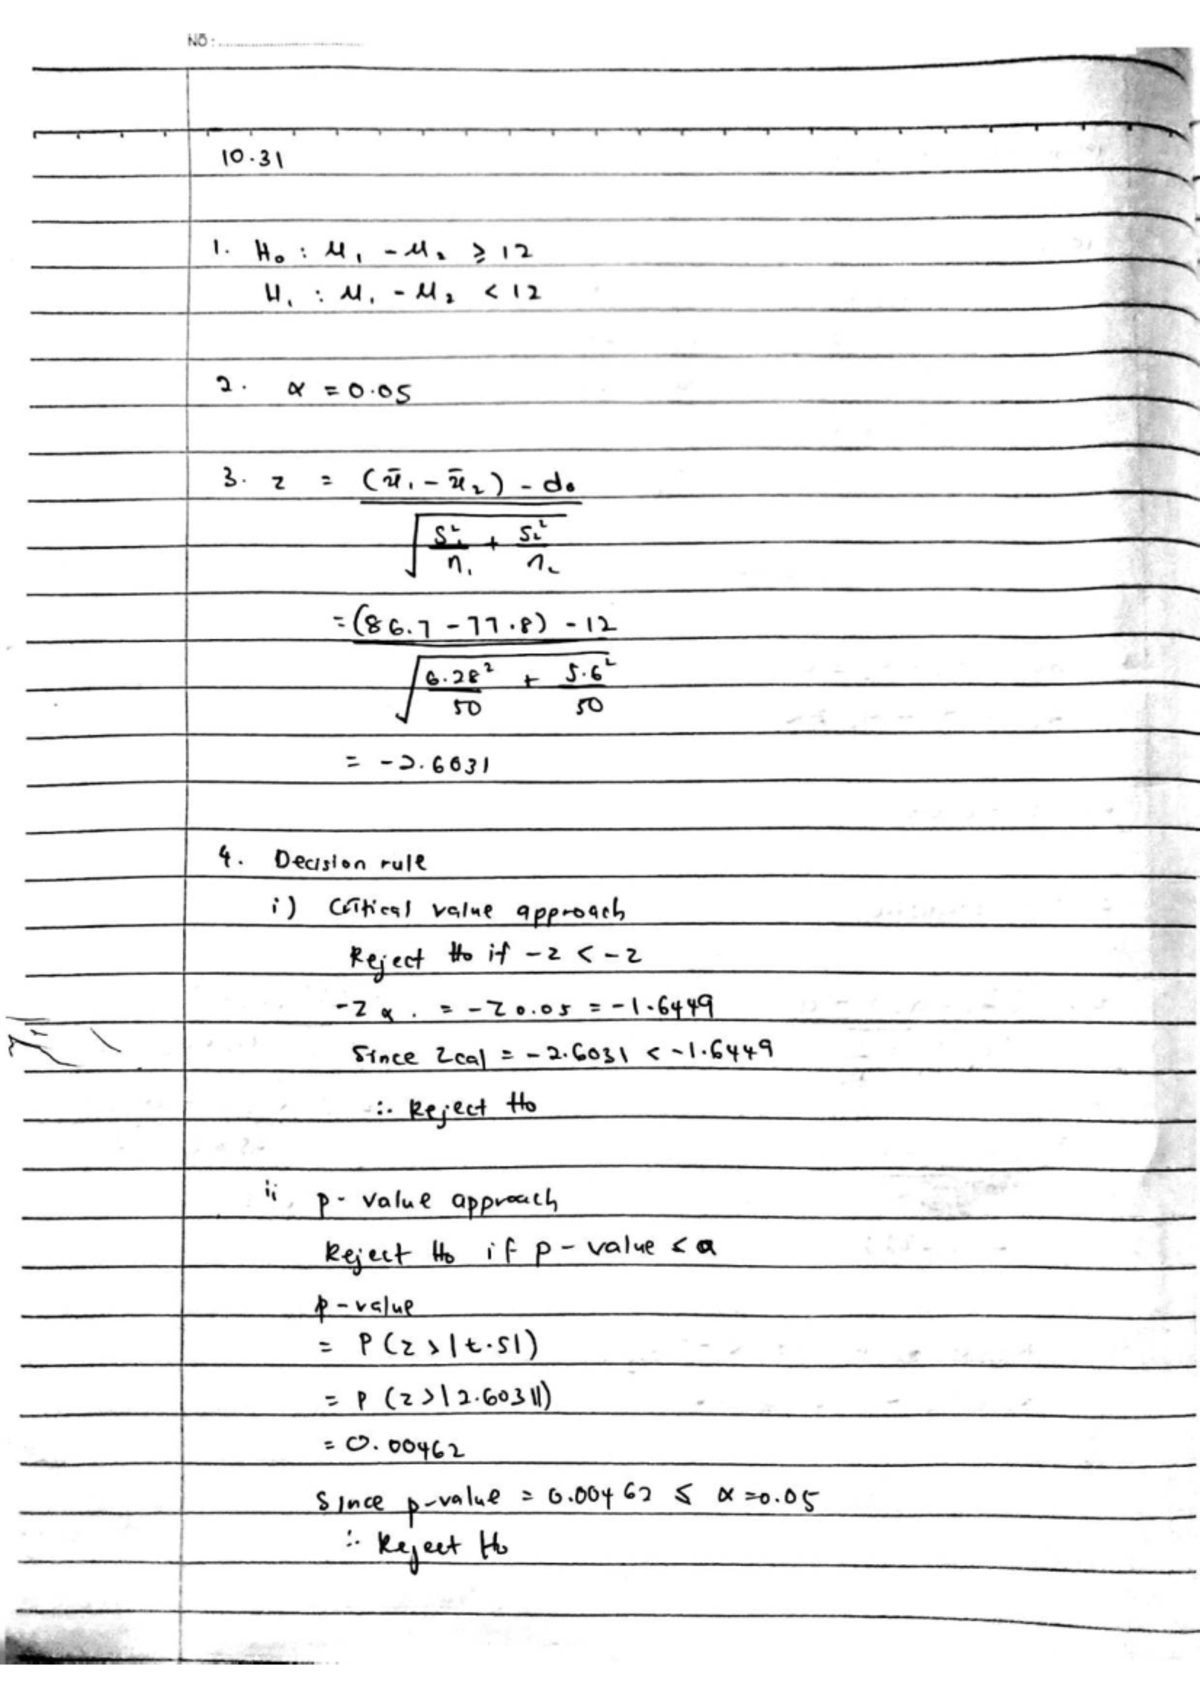 NO:
10.31
1. H₀ : μ₁ - μ₂ ≥ 12
H₁ : μ₁ - μ₂ < 12
2. α = 0.05
3. z = (x̄₁ - x̄₂) - d₀
√ S₁²/n₁ + S₂²/n₂
= (86.7 - 77.8) - 12
√ 6.28²/50 + 5.6²/50
= -2.6031
4. Decision rule
i) Critical value approach
Reject H₀ if -z < -z
-Z α . = -Z 0.05 = -1.6449
Since Zcal = -2.6031 < -1.6449
∴ Reject H₀
ii p-value approach
Reject H₀ if p-value < α
p-value
= P(z > |t.s|)
= P(z > |2.6031|)
= 0.00462
Since p-value = 0.00462 ≤ α = 0.05
∴ Reject H₀